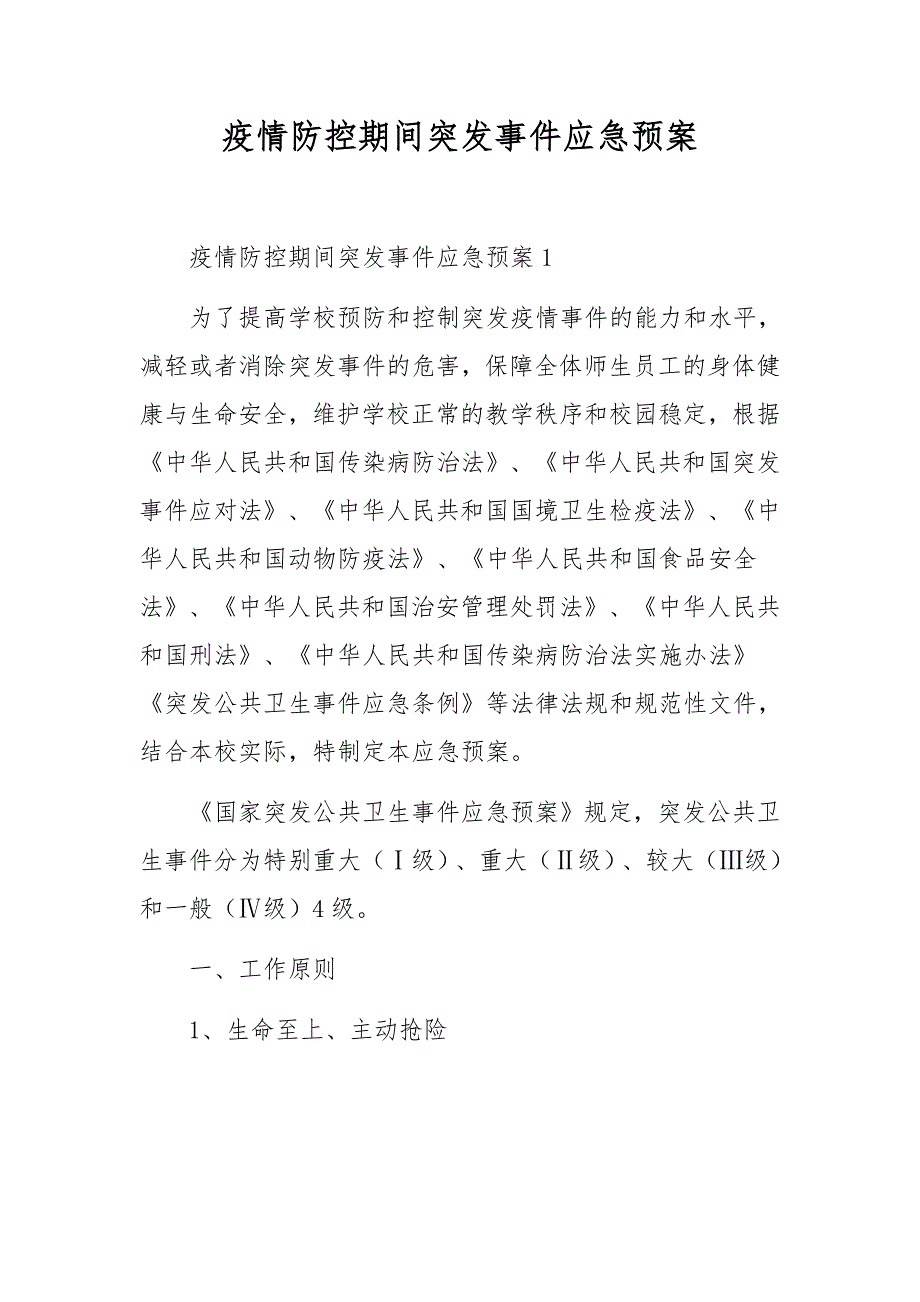 疫情防控期间突发事件应急预案
疫情防控期间突发事件应急预案1
为了提高学校预防和控制突发疫情事件的能力和水平，
减轻或者消除突发事件的危害，保障全体师生员工的身体健
康与生命安全，维护学校正常的教学秩序和校园稳定，根据
《中华人民共和国传染病防治法》、《中华人民共和国突发
事件应对法》、《中华人民共和国国境卫生检疫法》、《中
华人民共和国动物防疫法》、《中华人民共和国食品安全
法》、《中华人民共和国治安管理处罚法》、《中华人民共
和国刑法》、《中华人民共和国传染病防治法实施办法》
《突发公共卫生事件应急条例》等法律法规和规范性文件，
结合本校实际，特制定本应急预案。
《国家突发公共卫生事件应急预案》规定，突发公共卫
生事件分为特别重大（Ⅰ级）、重大（Ⅱ级）、较大（Ⅲ级）
和一般（Ⅳ级）4 级。
一、工作原则
1、生命至上、主动抢险